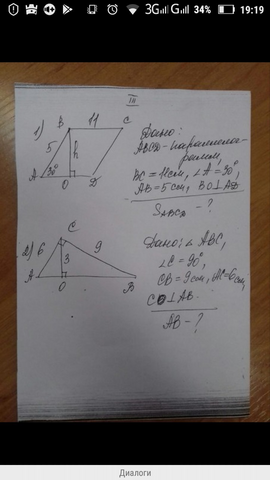 3G G 34% 19:19
III
1) B 11 C
5 h
A 30° O D
Дано:
ABCD - параллелог-
рамм,
BC = 11 см, ∠A = 30°,
AB = 5 см, BO⊥AD
SABCD - ?
2) C
6 3 9
A O B
Дано: ∠ ABC,
∠C = 90°,
CB = 9 см, AC = 6 см,
CO ⊥ AB.
AB - ?
Диалоги